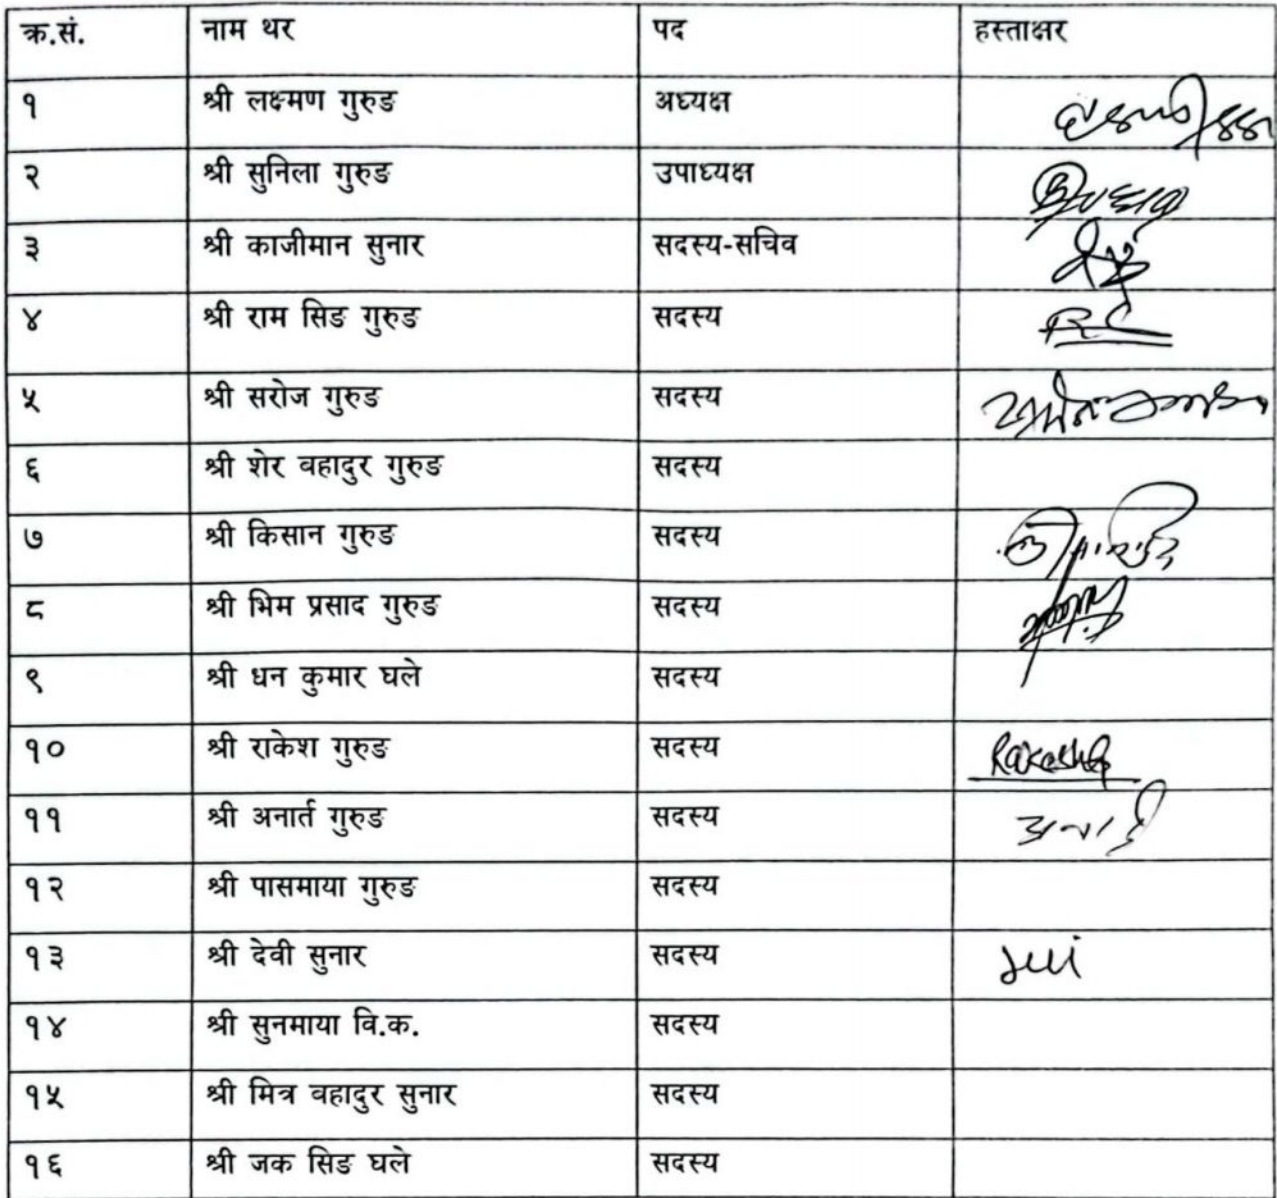 क्र.सं. नाम थर पद हस्ताक्षर
१ श्री लक्ष्मण गुरुङ अध्यक्ष
२ श्री सुनिला गुरुङ उपाध्यक्ष
३ श्री काजीमान सुनार सदस्य-सचिव
४ श्री राम सिङ गुरुङ सदस्य
५ श्री सरोज गुरुङ सदस्य
६ श्री शेर बहादुर गुरुङ सदस्य
७ श्री किसान गुरुङ सदस्य
८ श्री भिम प्रसाद गुरुङ सदस्य
९ श्री धन कुमार घले सदस्य
१० श्री राकेश गुरुङ सदस्य
११ श्री अनार्त गुरुङ सदस्य
१२ श्री पासमाया गुरुङ सदस्य
१३ श्री देवी सुनार सदस्य
१४ श्री सुनमाया वि.क. सदस्य
१५ श्री मित्र बहादुर सुनार सदस्य
१६ श्री जक सिङ घले सदस्य